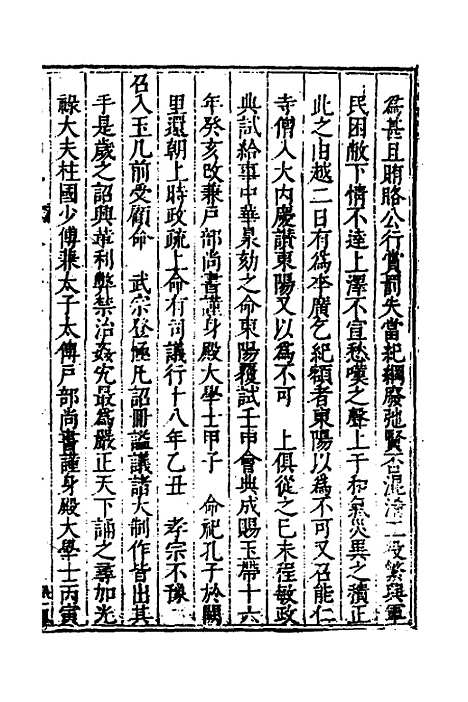 爲甚且賄賂公行賞罰失當紀綱廢弛賢否混淆工役繁興軍
民困敝下情不達上澤不宣愁嘆之聲上干和氣災異之積正
此之由越二日有爲李廣乞祠額者東陽以爲不可又召能仁
寺僧入大内慶讃東陽又以爲不可　上俱從之已未程敏政
典試給事中華杲劾之命東陽覆試壬申會典成賜玉帶十六
年癸亥改兼戸部尚書謹身殿大學士甲子　命祀孔子於闕
里還朝上時政疏上命有司議行十八年乙丑　孝宗不豫
召入玉几前受顧命　武宗登極凡詔冊謚議諸大制作皆出其
手是歲之詔興革利弊禁治姦宄最爲嚴正天下誦之尋加光
祿大夫柱國少傅兼太子太傅戸部尚書謹身殿大學士丙寅